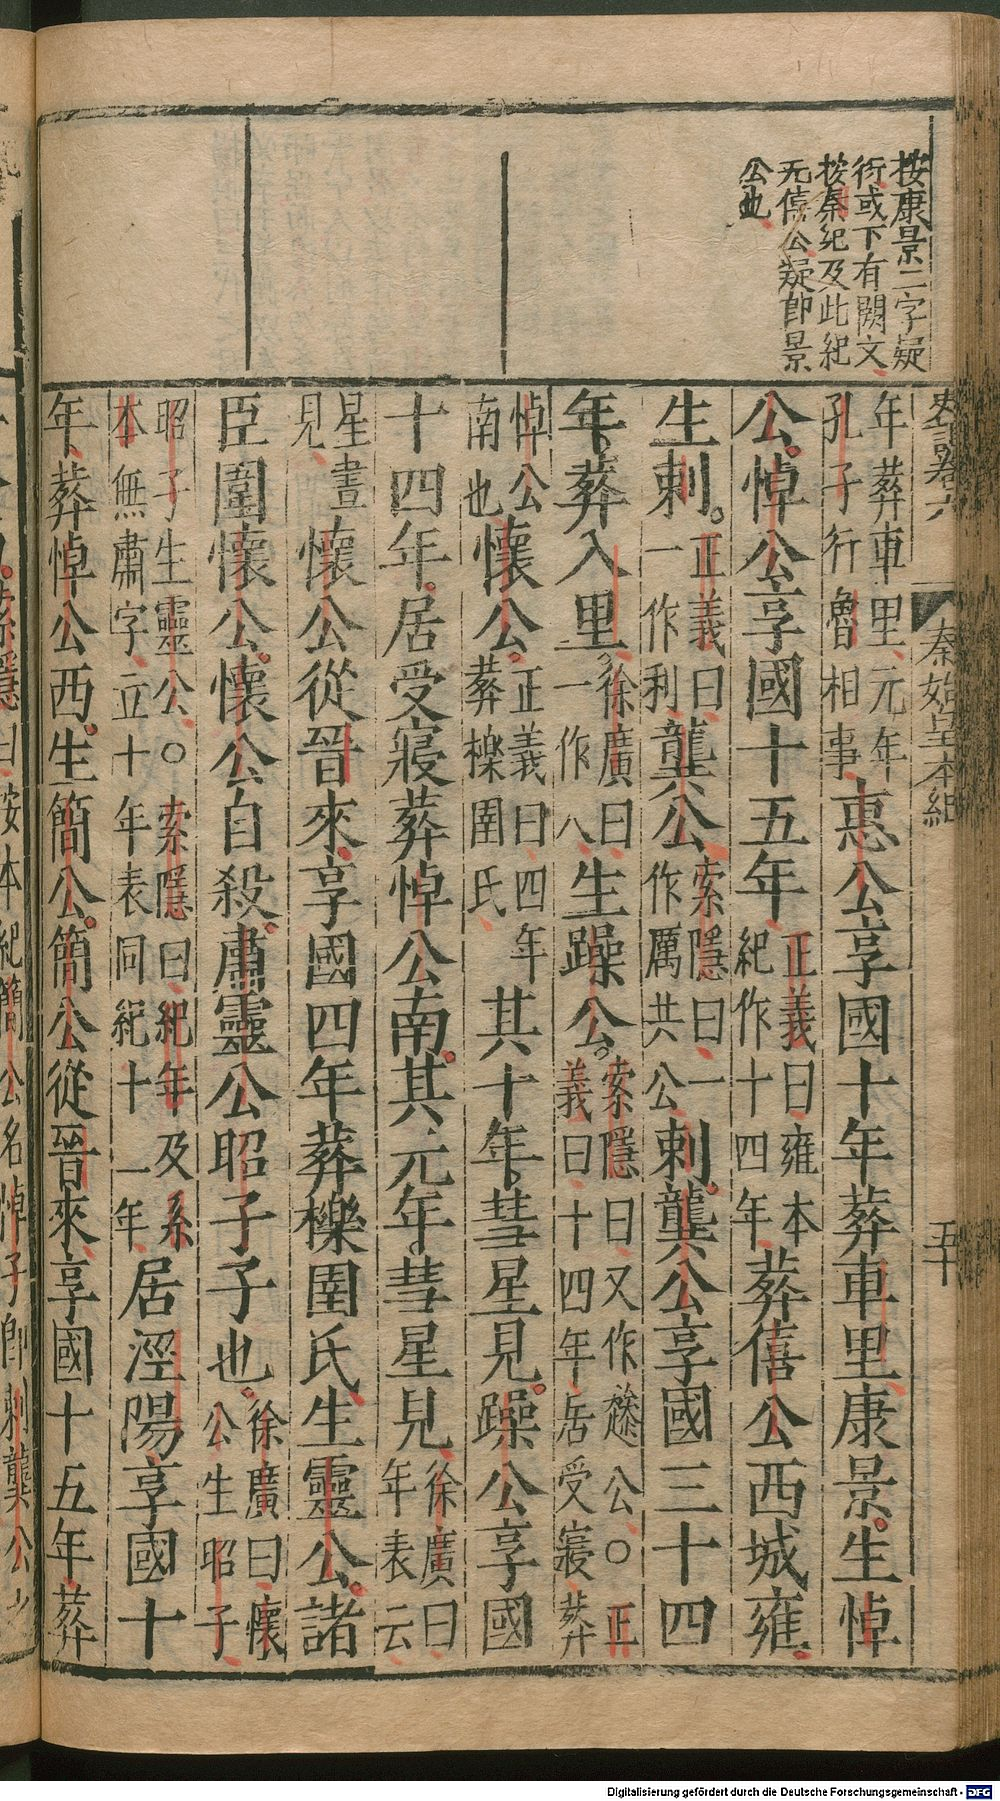 按康景二字疑
衍或下有闕文
按秦紀及此紀
无僖公疑即景
公也
史記卷六
秦始皇本紀
五十
年葬車里元年
孔子行魯相事
惠公享國十年葬車里康景生悼
公悼公享國十五年
正義曰雍本
紀作十四年
葬僖公西城雍
生剌
正義曰
一作利
龔公
索隱曰一
作厲共公
剌龔公享國三十四
年葬入里
徐廣曰
一作八
生躁公
索隱曰又作趮公〇正
義曰十四年居受寢葬
悼公
南也
懷公
正義曰四年
葬櫟圉氏
其十年彗星見躁公享國
十四年居受寢葬悼公南其元年彗星見
徐廣曰
年表云
星晝
見
懷公從晉來享國四年葬櫟圉氏生靈公諸
臣圍懷公懷公自殺肅靈公昭子子也
徐廣曰懷
公生昭子
昭子生靈公〇索隱曰紀年及系
本無肅字立十年表同紀十一年
居涇陽享國十
年葬悼公西生簡公簡公從晉來享國十五年葬
索隱曰按本紀簡公名悼子即剌龔公之
Digitalisierung gefördert durch die Deutsche Forschungsgemeinschaft - DFG